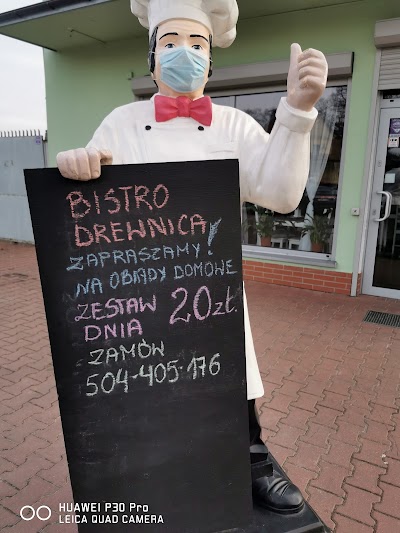 BISTRO
DREWNICA!
ZAPRASZAMY
NA OBIADY DOMOWE
ZESTAW 20zł.
DNIA
ZAMÓW
504-405-176
HUAWEI P30 Pro
LEICA QUAD CAMERA